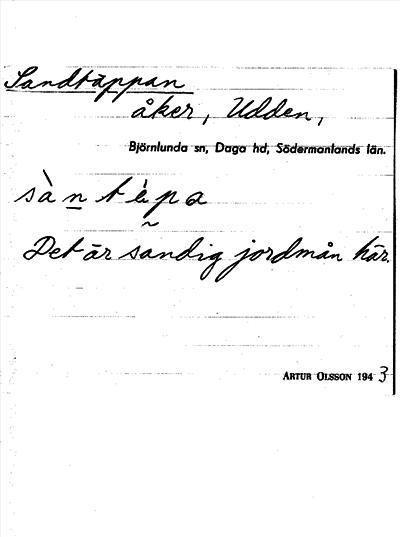 Sandtäppan
åker, Udden,
Björnlunda sn, Daga hd, Södermanlands län.
sàn̲ tḛ̀pa
Det är sandig jordmån här.
ARTUR OLSSON 1943